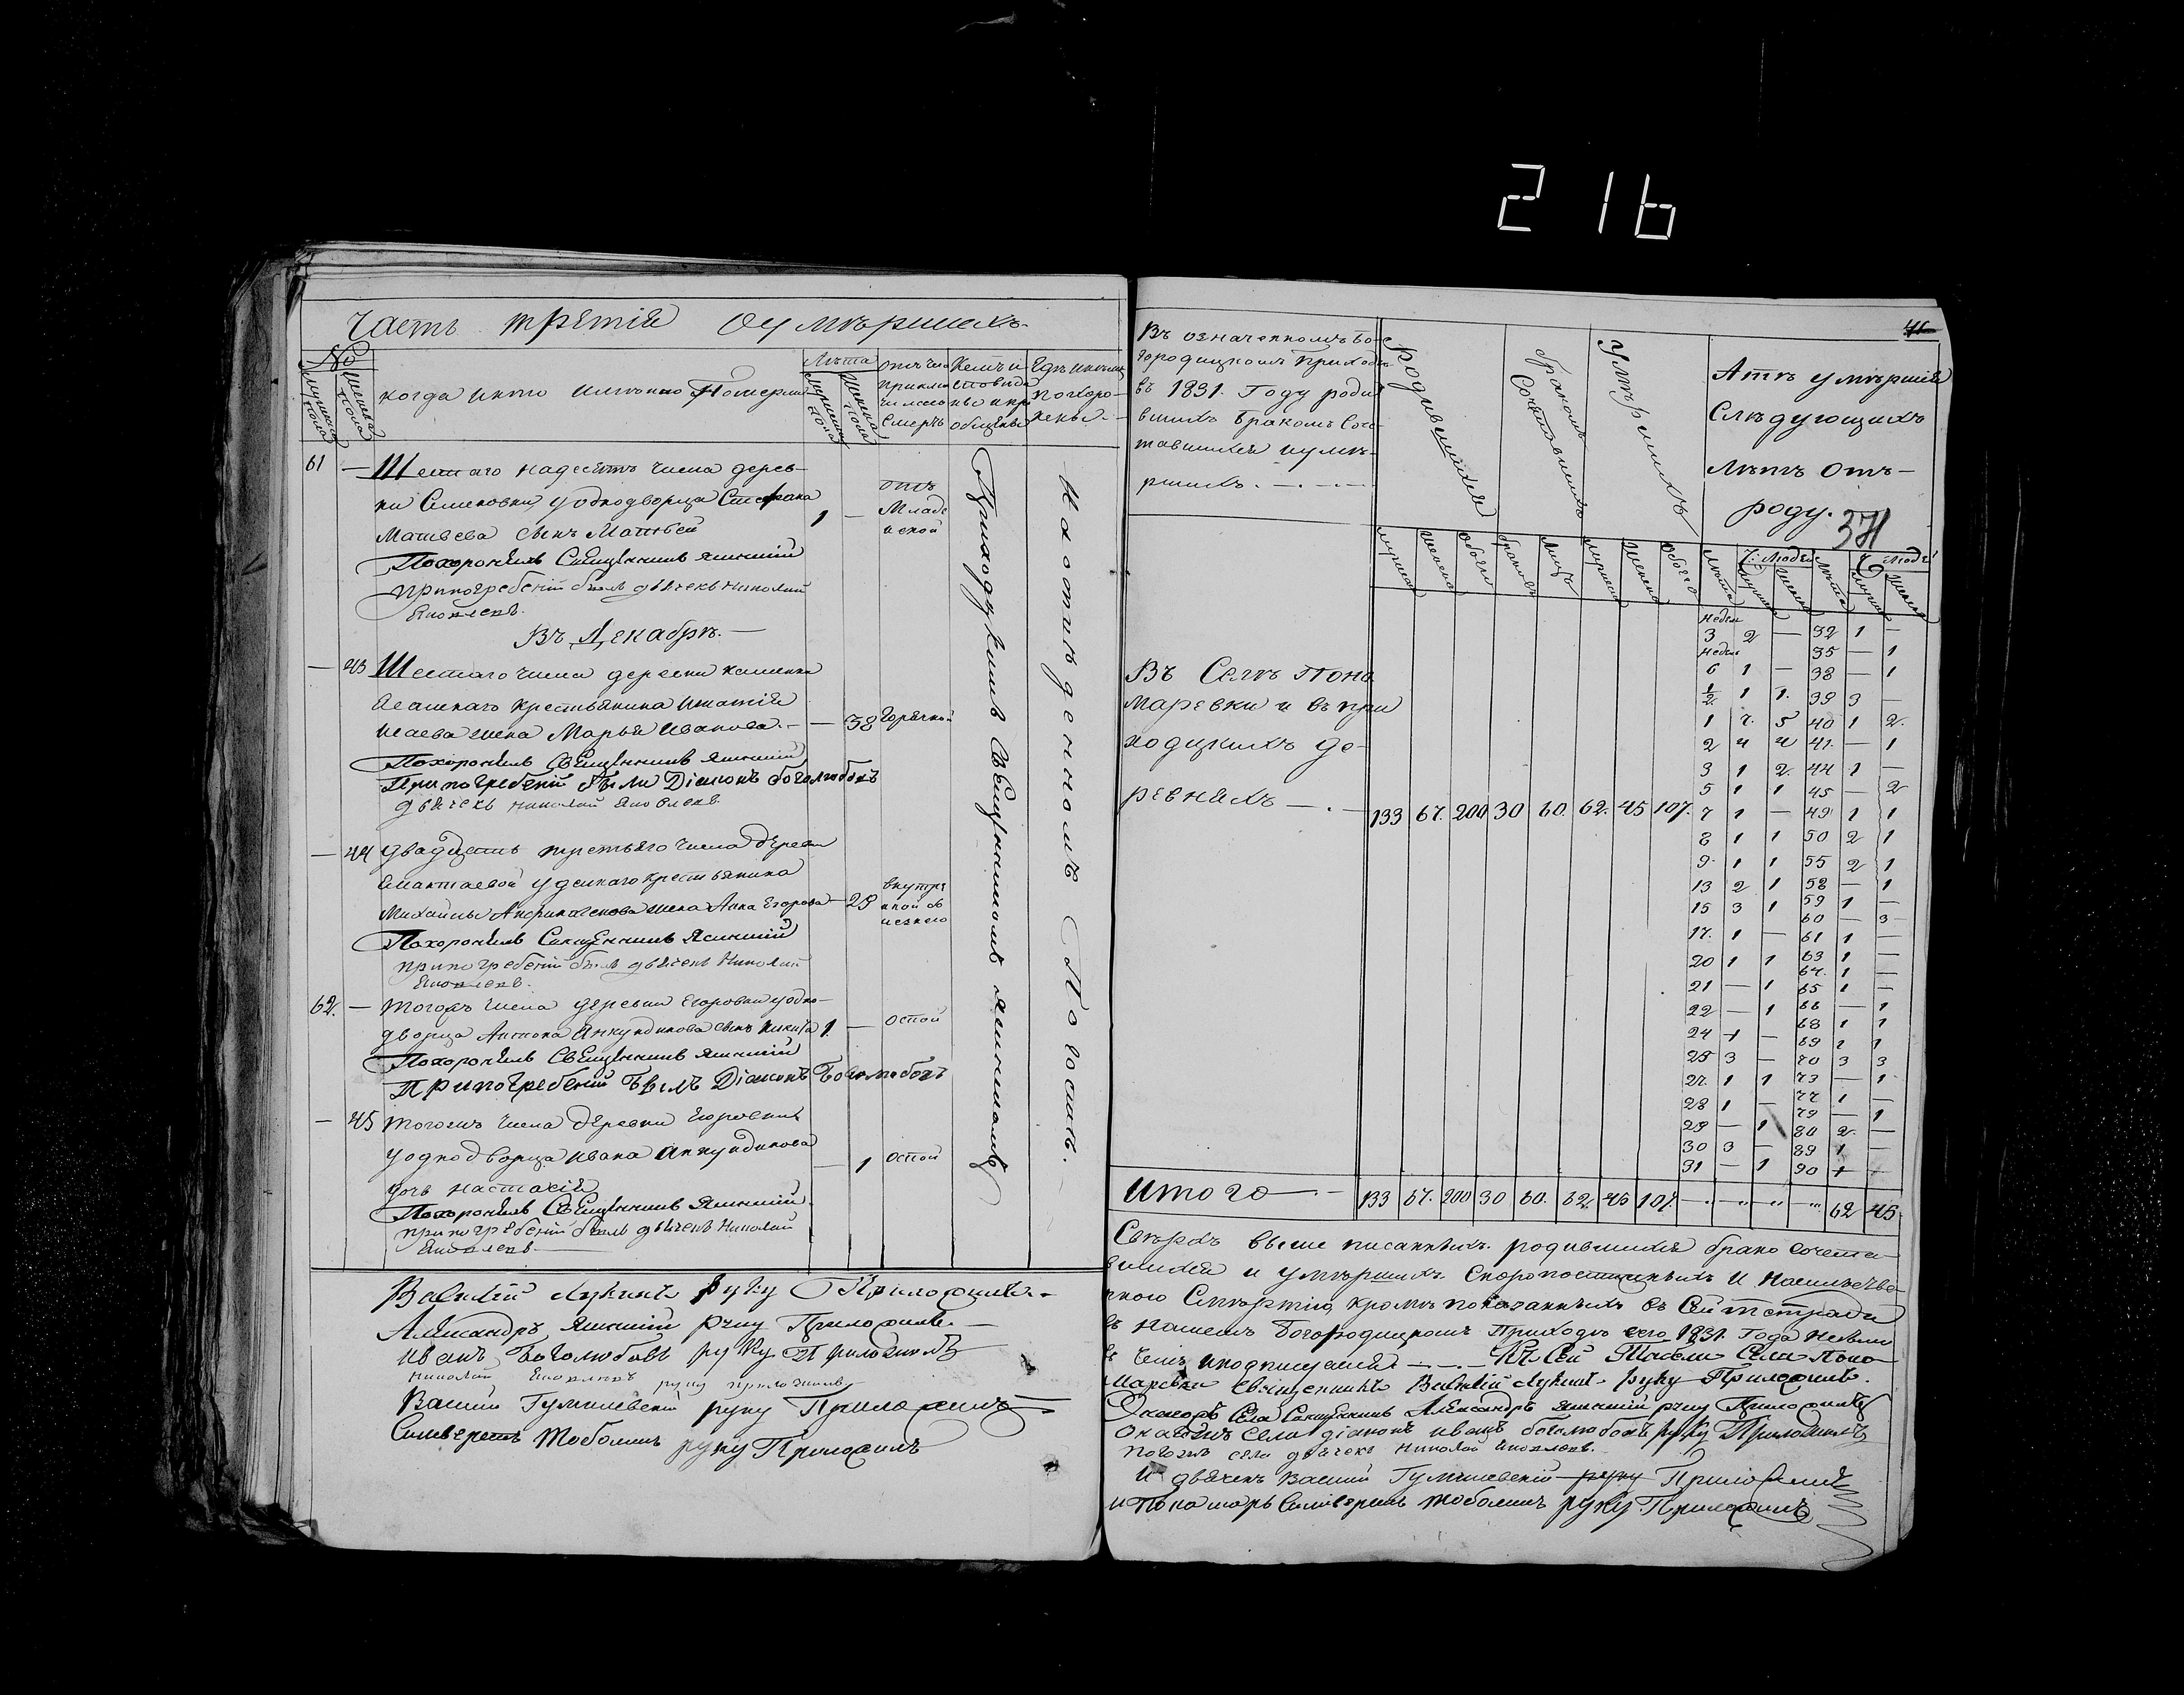 216
Часть третія Оумѣршихъ.
№
мужеска пола
женска пола
когда и кто имянно Померли
Лѣта
мужеска пола
женска пола
отъ чего приключилась Смерть
Кемъ исповѣданы и приобщены
Где и кемъ похоронены
61 — Шестаго надесять числа дерев-
ни Семеновки уоднодворца Стефана
Матвеева сынъ Матвей
1 —
отъ
Младе
нской
Похоронилъ Священникъ Ясинскій
при погребеніи былъ дьячекъ Николай
Яковлевъ.
Въ Декабрѣ. —
— 43 Шестаго числа деревни Каменки
крестьянина Игнатія
Исаева жена Марья Иванова. — — 38 Горячкой
Похоронилъ Священникъ Ясинскій
При погребеніи были Діаконъ Боголюбовъ
дьячекъ Николай Яковлевъ
— 44 двадцать третьяго числа деревни
удельнаго крестьянина
Михайлы жена Анна Егорова — 25
внутре
нной бо
лезнею
Похоронилъ Священникъ Ясинскій
при погребеніи былъ дьячекъ Николай
Яковлевъ.
62. — тогожъ числа деревни Егоровки уодно-
дворца Антона Анкундинова сынъ Никита 1. — оспой
Похоронилъ Священникъ Ясинскій
При погребеніи Былъ Діаконъ Боголюбовъ
— 45 тогожъ числа деревни Егоровки
уоднодворца Ивана Анкундинова
дочь Настасія
— 1 оспой
Похоронилъ Священникъ Ясинскій
при погребеніи былъ дьячекъ Николай
Яковлевъ.
Приходскимъ Священникомъ Ясинскимъ
На отведенномъ Погостѣ.
Василій Лукинъ руку Приложилъ.
Александръ Ясинскій руку Приложилъ. —
Иванъ Боголюбовъ руку Приложилъ
Николай Яковлевъ руку приложилъ
Василій Гумилевскій руку Приложилъ
Силивестръ Тоболинъ руку Приложилъ
Въ означенномъ Бо-
городицкомъ Приходѣ
въ 1831. Году роди
вшихъ бракомъ Соче
тавшихся и умѣ-
ршихъ. —
родившихся
бракомъ Сочетавшихъ
Умѣршихъ
Лѣтъ умѣршія
Слѣдующихъ
лѣтъ отъ —
роду.
371
мужеска
женска
обоего
браковъ
лицъ
мужеска
женска
обоего
лѣта
Ч: Людей
мужеска
женска
лѣта
Ч Людей
мужеска
женска
Въ Селѣ Поно
маревки и въ при
ходцкихъ де-
ревняхъ — . — 133 67. 200 30 60. 62. 45 107.
недели
3 2 — 32 1 —
недели 35 — 1
6 1 — 38 — 1
1/2 1 1. 39 3 —
1 7. 5 40 1 2.
2 4 4 41. — 1
3 1 2. 44 1 —
5 1 1 45 — 2
7 1 — 49 1 1
8 1 1 50 2 1
9 1 1 55 2 1
13 2 1 58 — 1
15 3 1 59 1 —
60 — 3
17. 1 — 61 1 —
20 1 1 63 1 —
64. 1 —
21 — 1 65 1 —
22 — 1 66 — 1
68 1 1
24 1 — 69 1 1
25 3 — 70 3 3
27. 1 1 73 — 1
28 1 — 77 1 —
79 — 1
29 — 1 80 2. —
30 3 — 89 1 —
31 — 1 90 1 —
Итого — 133 67. 200 30 60. 62. 45 107. 62 45
Свѣрхъ выше писанныхъ родившихся брако сочета-
вшихся и умѣршихъ Скоропостижныхъ и насильстве-
нною Смѣртію кромѣ показанныхъ въ Сей тетради
въ нашемъ Богородицкомъ Приходѣ сего 1831. Года небыли
въ чемъ и подписуемся. — Къ Сей Табели Села Поно-
маревки Священникъ Василій Лукинъ руку Приложилъ.
Села Священникъ Александръ Ясинскій руку Приложилъ
Села діаконъ Иванъ Боголюбовъ руку Приложилъ
села дьячекъ Николай Яковлевъ.
И дьячекъ Василій Гумилевскій руку Приложилъ
и Пономарь Силиверстъ Тоболинъ руку Приложилъ